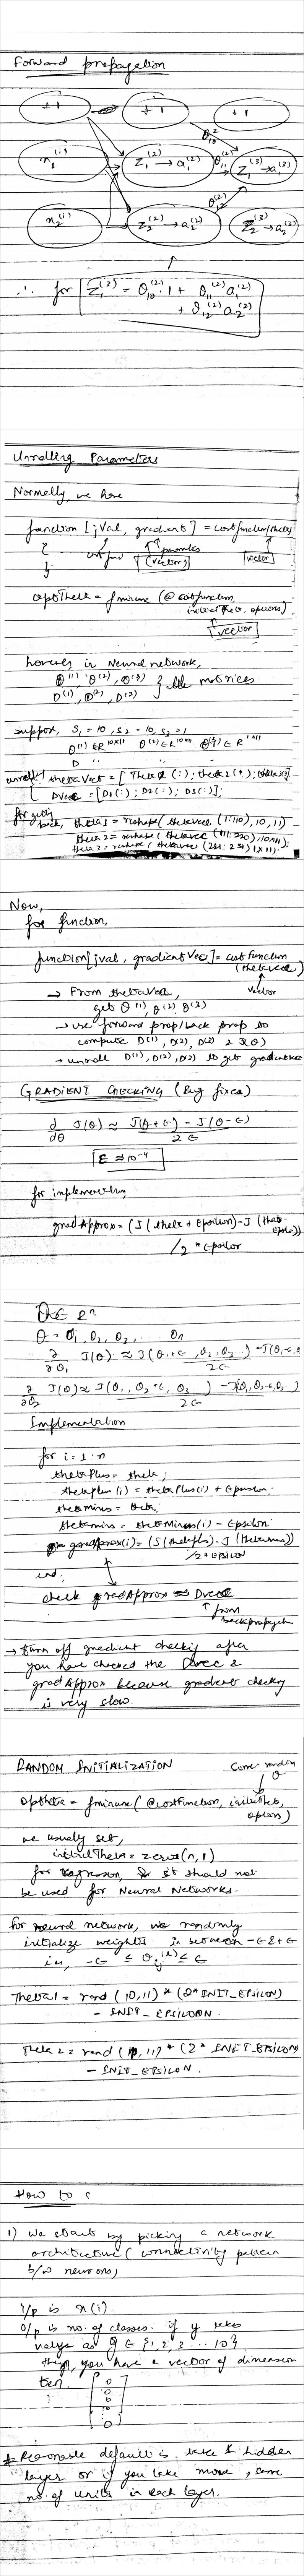 Forward propagation
+1 → +1 +1
x₁⁽ⁱ⁾ z₁⁽²⁾ → a₁⁽²⁾ z₁⁽³⁾ → a₁⁽³⁾
θ₁₀⁽²⁾ θ₁₁⁽²⁾ θ₁₂⁽²⁾
x₂⁽ⁱ⁾ z₂⁽²⁾ → a₂⁽²⁾ z₂⁽³⁾ → a₂⁽³⁾
∴ for z₁⁽³⁾ = θ₁₀⁽²⁾·1 + θ₁₁⁽²⁾a₁⁽²⁾
+ θ₁₂⁽²⁾a₂⁽²⁾
Unrolling Parameters
Normally, we have
function [jVal, gradient] = costfunction(theta)
{ cost func parameters
} (vector) vector
optTheta = fminunc (@costfunction,
initialTheta, options)
vector
however in Neural network,
θ⁽¹⁾, θ⁽²⁾, θ⁽³⁾ } matrices
D⁽¹⁾, D⁽²⁾, D⁽³⁾
suppose, s₁ = 10, s₂ = 10, s₃ = 1
θ⁽¹⁾ ∈ R¹⁰ˣ¹¹ θ⁽²⁾ ∈ R¹⁰ˣ¹¹ θ⁽³⁾ ∈ R¹ˣ¹¹
D " " "
unroll { thetaVect = [Theta1(:); theta2(:); theta3(:)]
DVec = [D1(:); D2(:); D3(:)];
for getting
back, theta1 = reshape(thetavec(1:110), 10, 11)
theta2 = reshape(thetavec(111:220), 10, 11);
theta3 = reshape(thetavec(221:231), 1, 11);
Now,
for function,
function [jval, gradientVec] = costfunction
(thetavec)
vector
→ From thetavec,
get θ⁽¹⁾, θ⁽²⁾, θ⁽³⁾
→ use forward prop/back prop to
compute D(1), D(2), D(3) & J(θ)
→ unroll D⁽¹⁾, D(2), D(3) to get gradientvec
GRADIENT CHECKING (Bug fixes)
d/dθ J(θ) ≈ J(θ+ε) − J(θ−ε) / 2ε
ε ≈ 10⁻⁴
for implementation,
gradApprox = (J(theta + Epsilon) − J(theta − Epsilon))
/2 * Epsilon
θ ∈ Rⁿ
θ = θ₁, θ₂, θ₃, ..... θn
∂/∂θ₁ J(θ) ≈ J(θ₁+ε, θ₂, θ₃ ) − J(θ₁−ε, θ / 2ε
∂/∂θ₂ J(θ) ≈ J(θ₁, θ₂+ε, θ₃ ) − J(θ₁, θ₂−ε, θ₃ ) / 2ε
Implementation
for i = 1 : n
thetaPlus = theta;
thetaplus(i) = thetaPlus(i) + Epsilon.
thetaMinus = theta;
thetaminus = thetaMinus(i) − Epsilon.
gradApprox(i) = (J(thetaplus) − J(thetaminus))
/2*EPSILON
end;
check gradApprox ≈ Dvec
from
backpropagation
→ turn off gradient checking after
you have checked the Dvec &
gradApprox because gradient checking
is very slow.
RANDOM INITIALIZATION some random
θ
optTheta = fminunc(@costFunction, initialTheta,
options)
we usually set,
initialTheta = zeros(n,1)
for regression, it should not
be used for Neural Networks.
for neural network, we randomly
initialize weights in between −ε & +ε
i.e., −ε ≤ θij⁽ˡ⁾ ≤ ε
Theta1 = rand (10,11) * (2*INIT_EPSILON)
− INIT_EPSILON
Theta2 = rand (1,11) * (2*INIT_EPSILON)
− INIT_EPSILON.
How to
1) We starts by picking a network
architecture (connectivity pattern
b/w neurons)
i/p is x(i)
o/p is no. of classes. if y takes
value as y ∈ {1, 2, 3 ... 10}
then, you have a vector of dimension
ten.
[0
0
0
0
:
0]
* Reasonable default is take 1 hidden
layer or if you take more, same
no. of units in each layer.